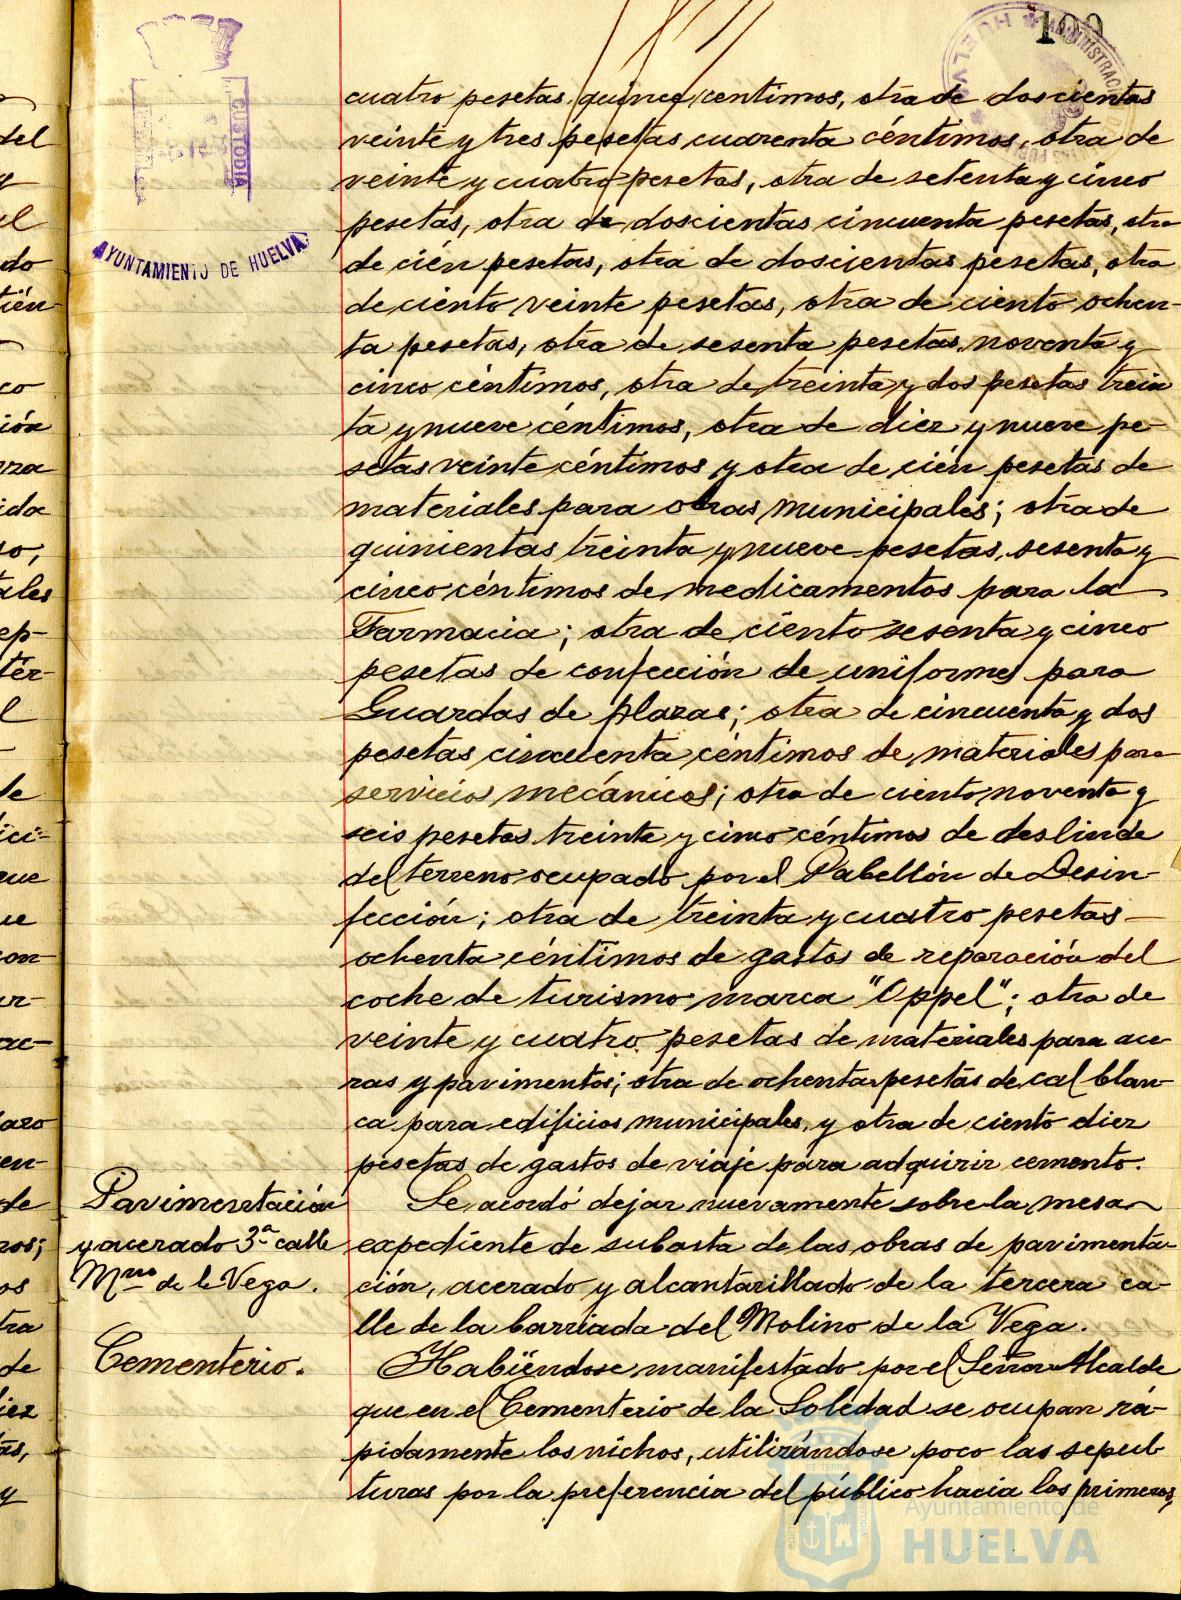 100
HUELVA * ADMINISTRACION
CUSTODIA
AYUNTAMIENTO DE HUELVA
cuatro pesetas quince centimos, otra de doscientas
veinte y tres pesetas cuarenta céntimos, otra de
veinte y cuatro pesetas, otra de setenta y cinco
pesetas, otra de doscientas cincuenta pesetas, otra
de cién pesetas, otra de doscientas pesetas, otra
de ciento veinte pesetas, otra de ciento ochen-
ta pesetas, otra de sesenta pesetas noventa y
cinco céntimos, otra de treinta y dos pesetas trein
ta y nueve céntimos, otra de diez y nueve pe-
setas veinte céntimos y otra de cién pesetas de
materiales para obras municipales; otra de
quinientas treinta y nueve pesetas, sesenta y
cinco céntimos de medicamentos para la
Farmacia; otra de ciento sesenta y cinco
pesetas de confección de uniformes para
Guardas de plazas; otra de cincuenta y dos
pesetas cincuenta céntimos de materiales para
servicios mecánicos; otra de ciento noventa y
seis pesetas treinta y cinco céntimos de deslinde
del terreno ocupado por el Pabellón de Desin-
fección; otra de treinta y cuatro pesetas
ochenta céntimos de gastos de reparación del
coche de turismo marca "Oppel"; otra de
veinte y cuatro pesetas de materiales para ace
ras y pavimentos; otra de ochenta pesetas de cal blan
ca para edificios municipales, y otra de ciento diez
pesetas de gastos de viaje para adquirir cemento.
Pavimentación
y acerado 3ª calle
Mno de la Vega.
Se acordó dejar nuevamente sobre la mesa
expediente de subasta de las obras de pavimenta-
ción, acerado y alcantarillado de la tercera ca-
lle de la barriada del Molino de la Vega.
Cementerio.
Habiéndose manifestado por el Señor Alcalde
que en el Cementerio de la Soledad se ocupan rá-
pidamente los nichos, utilizándose poco las sepul
turas por la preferencia del público hacia los primeros,
Ayuntamiento de
HUELVA